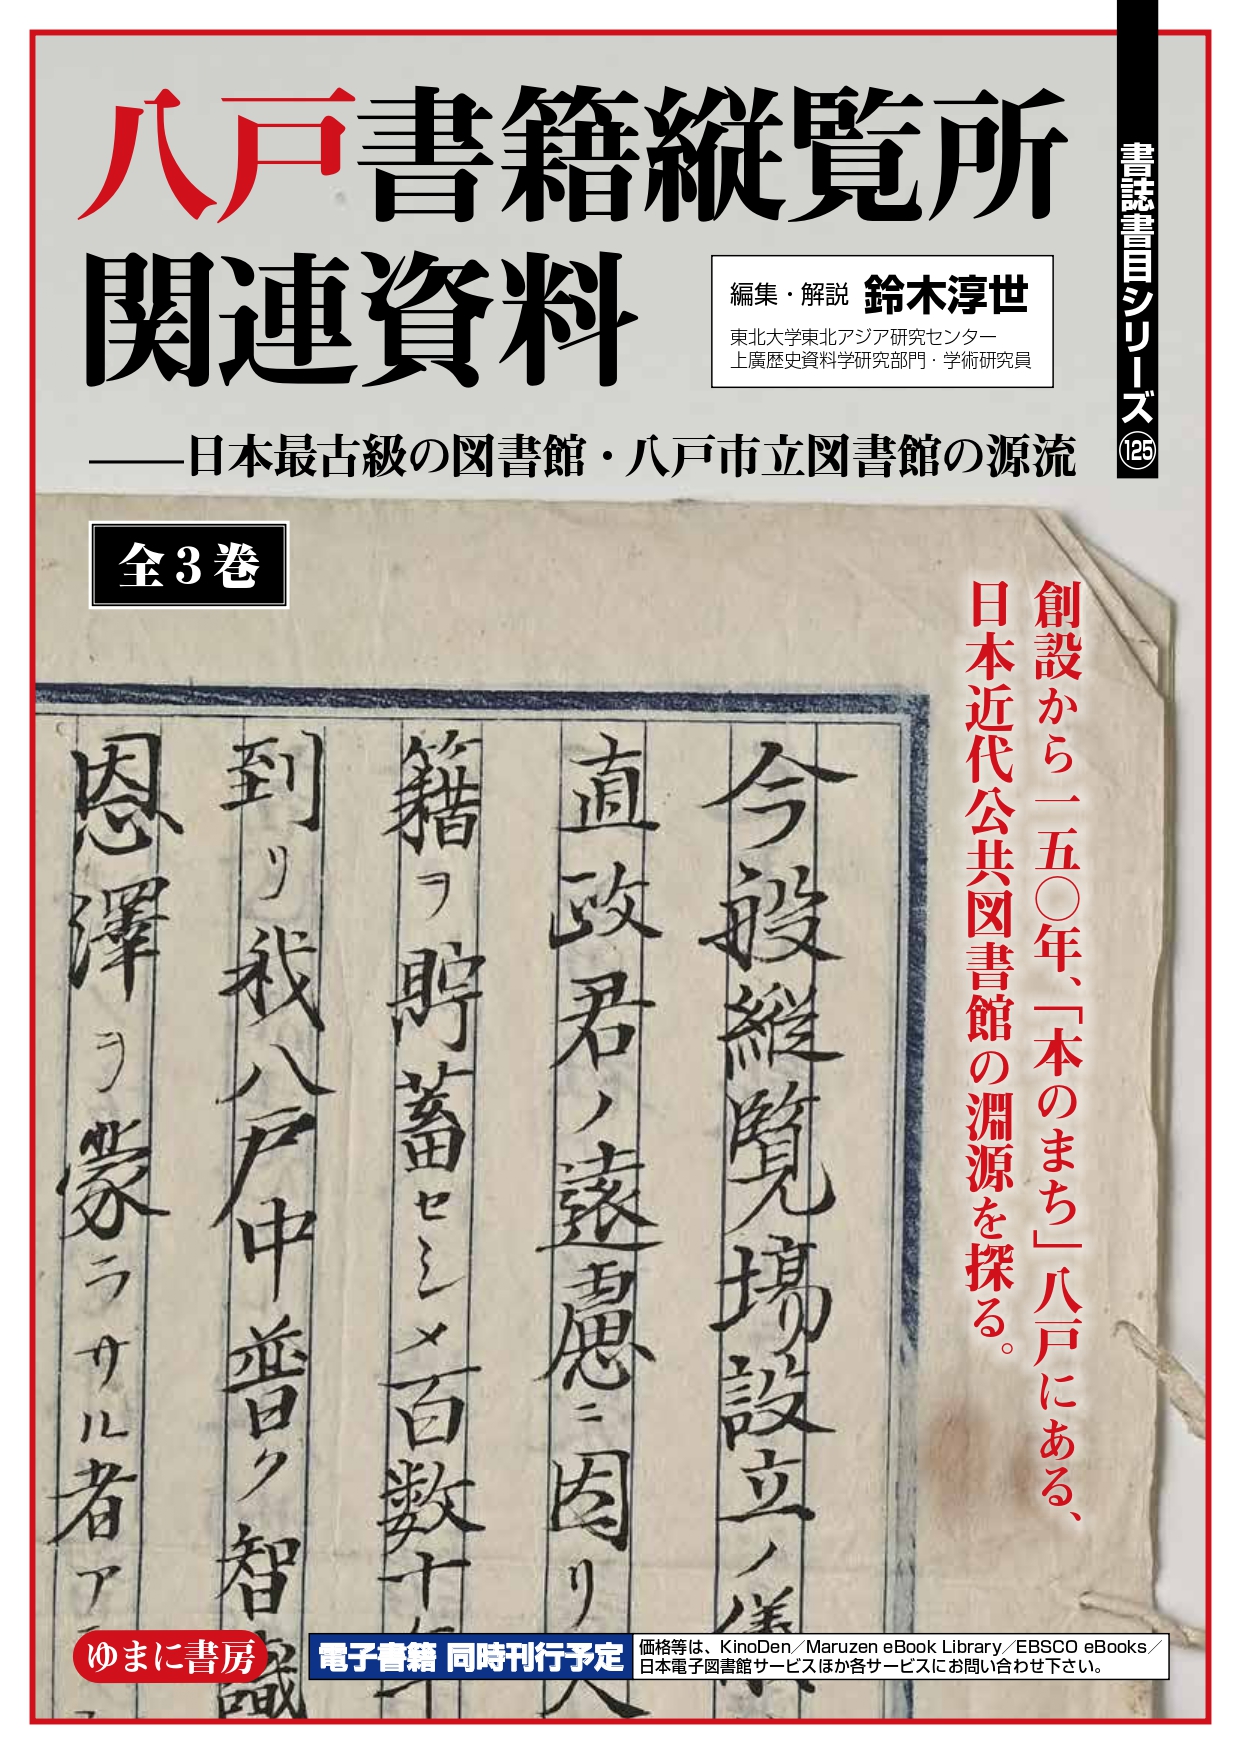 八戸書籍縦覧所
関連資料
編集・解説 鈴木淳世
東北大学東北アジア研究センター
上廣歴史資料学研究部門・学術研究員
――日本最古級の図書館・八戸市立図書館の源流
書誌書目シリーズ125
全3巻
創設から一五〇年、「本のまち」八戸にある、
日本近代公共図書館の淵源を探る。
今般縦覧場設立ノ儀
直政君ノ遠慮ニ因リ
籍ヲ貯蓄セシメ百数十年
到リ我八戸中普ク智識
恩澤ヲ蒙ラサル者ア
ゆまに書房
電子書籍 同時刊行予定
価格等は、KinoDen／Maruzen eBook Library／EBSCO eBooks／
日本電子図書館サービスほか各サービスにお問い合わせ下さい。